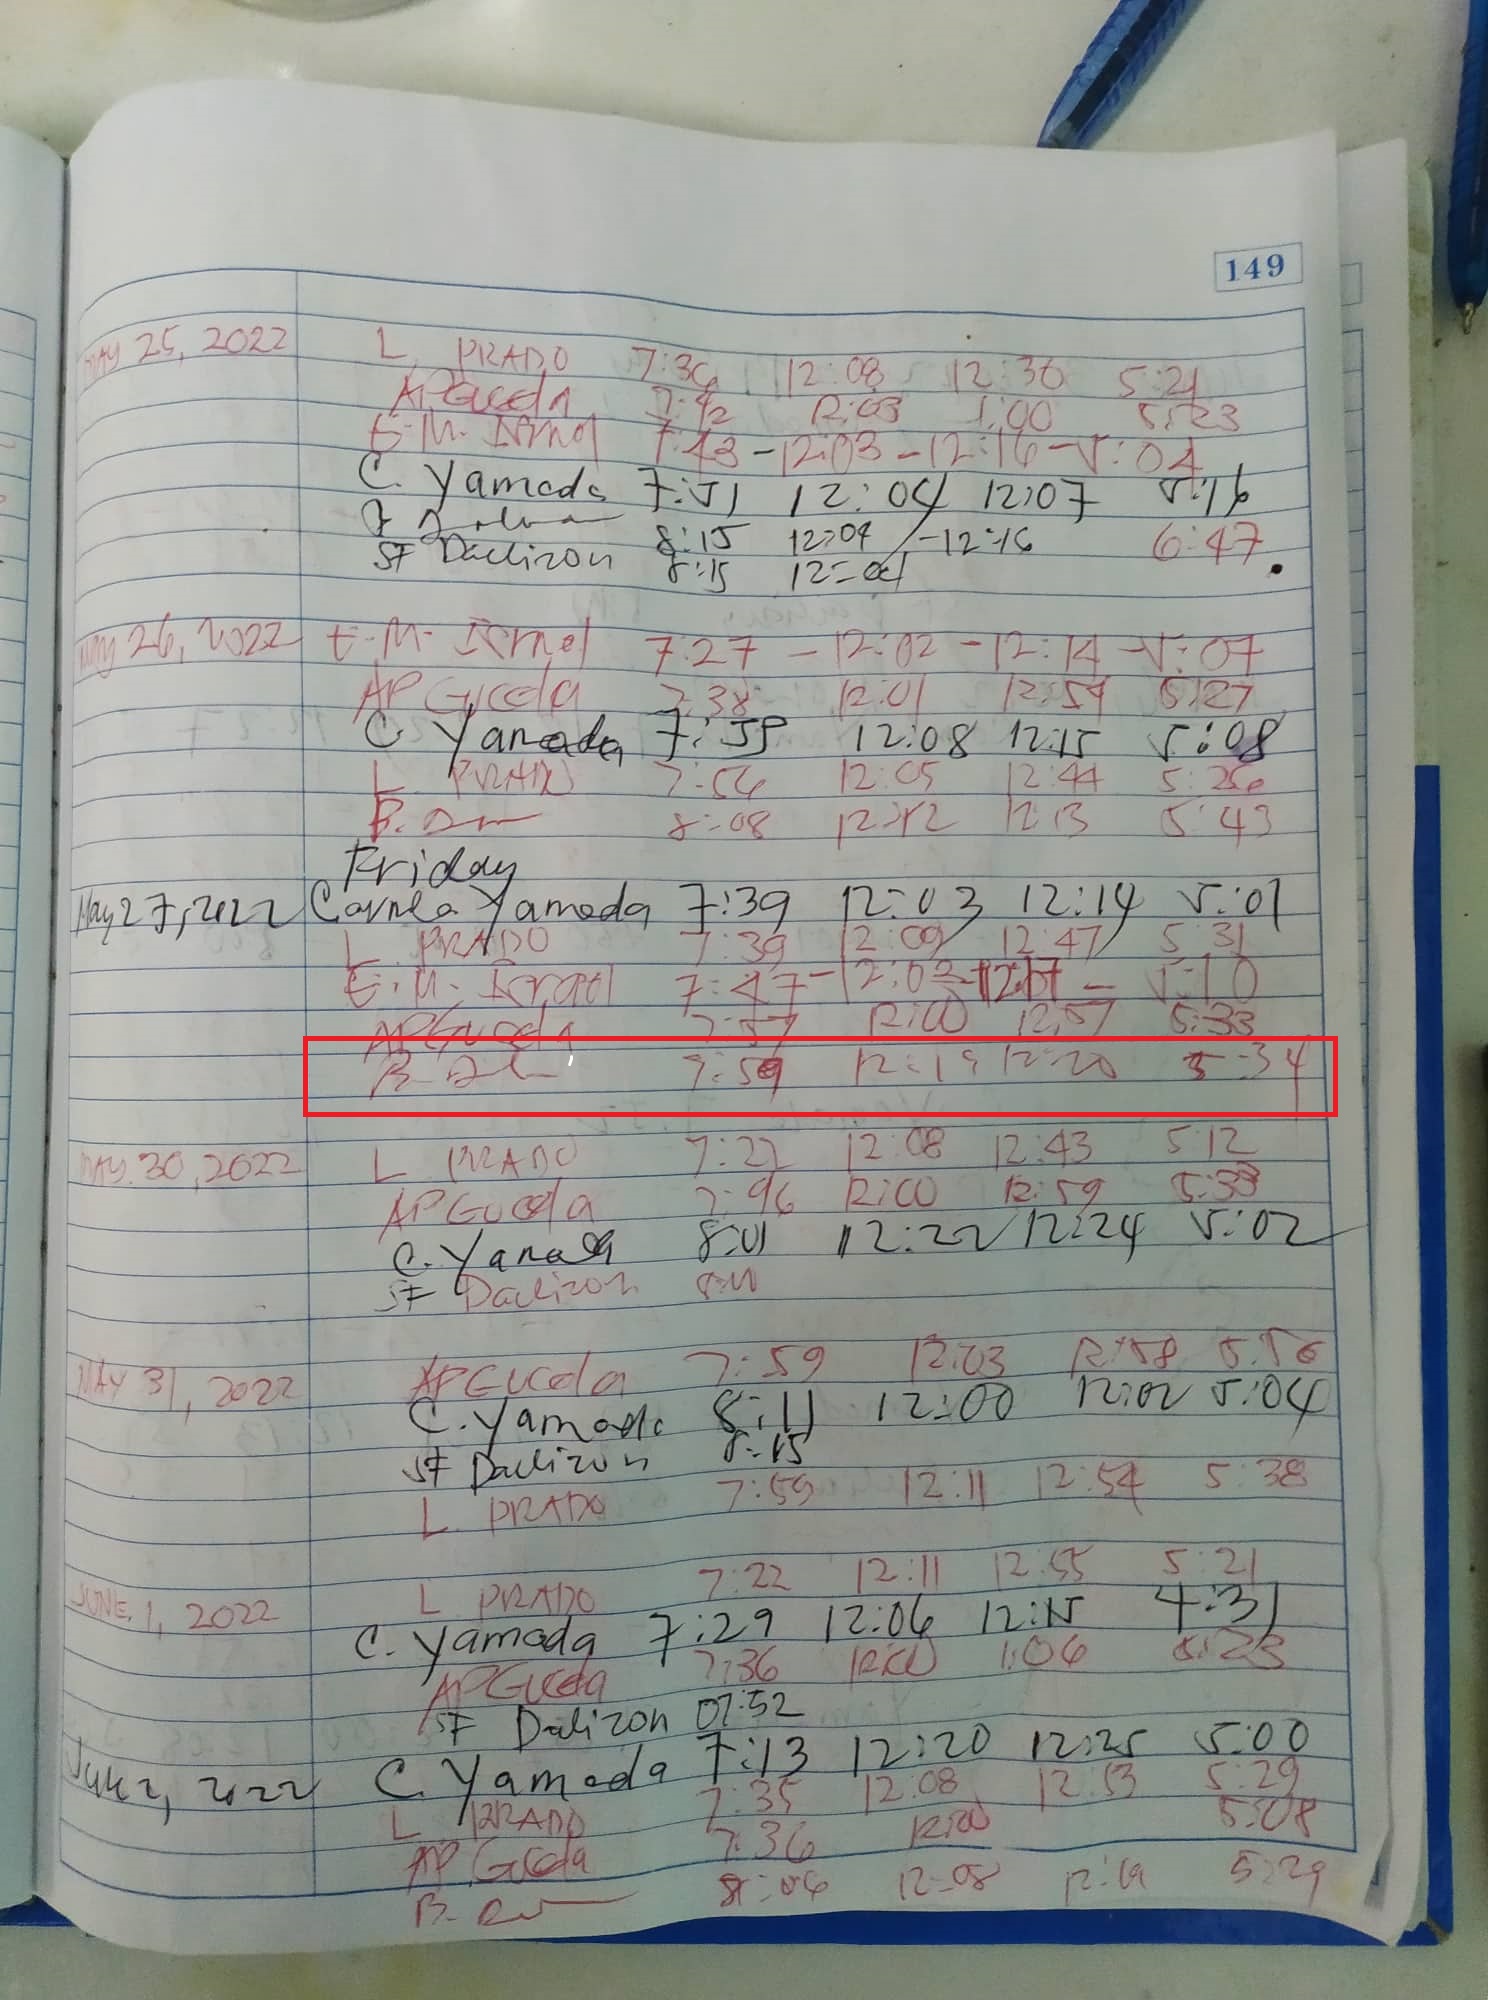 149
MAY 25, 2022 L PRADO 7:36 12:08 12:36 5:21
AP Guceda 7:42 12:03 1:00 5:23
E.M. Ismael 7:43 - 12:03 - 12:16 - 5:04
C. Yamada 7:51 12:04 12:07 5:16
8:15 12:04 - 12:16 6:47
SF Daclizon 8:15 12:04
MAY 26, 2022 E.M. Ismael 7:27 - 12:02 - 12:14 - 5:07
AP Guceda 7:38 12:01 12:59 5:27
C Yamada 7:58 12:08 12:15 5:08
L PRADO 7:56 12:05 12:44 5:26
B. 8:08 12:12 12:13 5:43
Friday
May 27, 2022 Yamada 7:39 12:03 12:14 5:01
L PRADO 7:39 12:09 12:47 5:31
E.M. Ismael 7:47 - 12:02 - 12:17 - 5:10
AP Guceda 7:57 12:00 12:57 5:33
B. 7:59 12:19 12:20 5:34
MAY 30, 2022 L PRADO 7:22 12:08 12:43 5:12
AP Guceda 7:46 12:00 12:59 5:33
C. Yamada 8:01 12:22 12:24 5:02
SF Daclizon
MAY 31, 2022 AP Guceda 7:59 12:03 12:58 5:56
C. Yamada 8:11 12:00 12:02 5:04
SF Daclizon 8:15
L PRADO 7:59 12:11 12:54 5:38
JUNE 1, 2022 L PRADO 7:22 12:11 12:55 5:21
C. Yamada 7:29 12:06 12:15 4:31
AP Guceda 7:36 12:00 1:06 5:23
SF Daclizon 07:52
June 2, 2022 C. Yamada 7:13 12:20 12:25 5:00
L PRADO 7:35 12:08 12:53 5:29
AP Guceda 7:36 12:00 5:08
B. 8:06 12:08 12:19 5:29